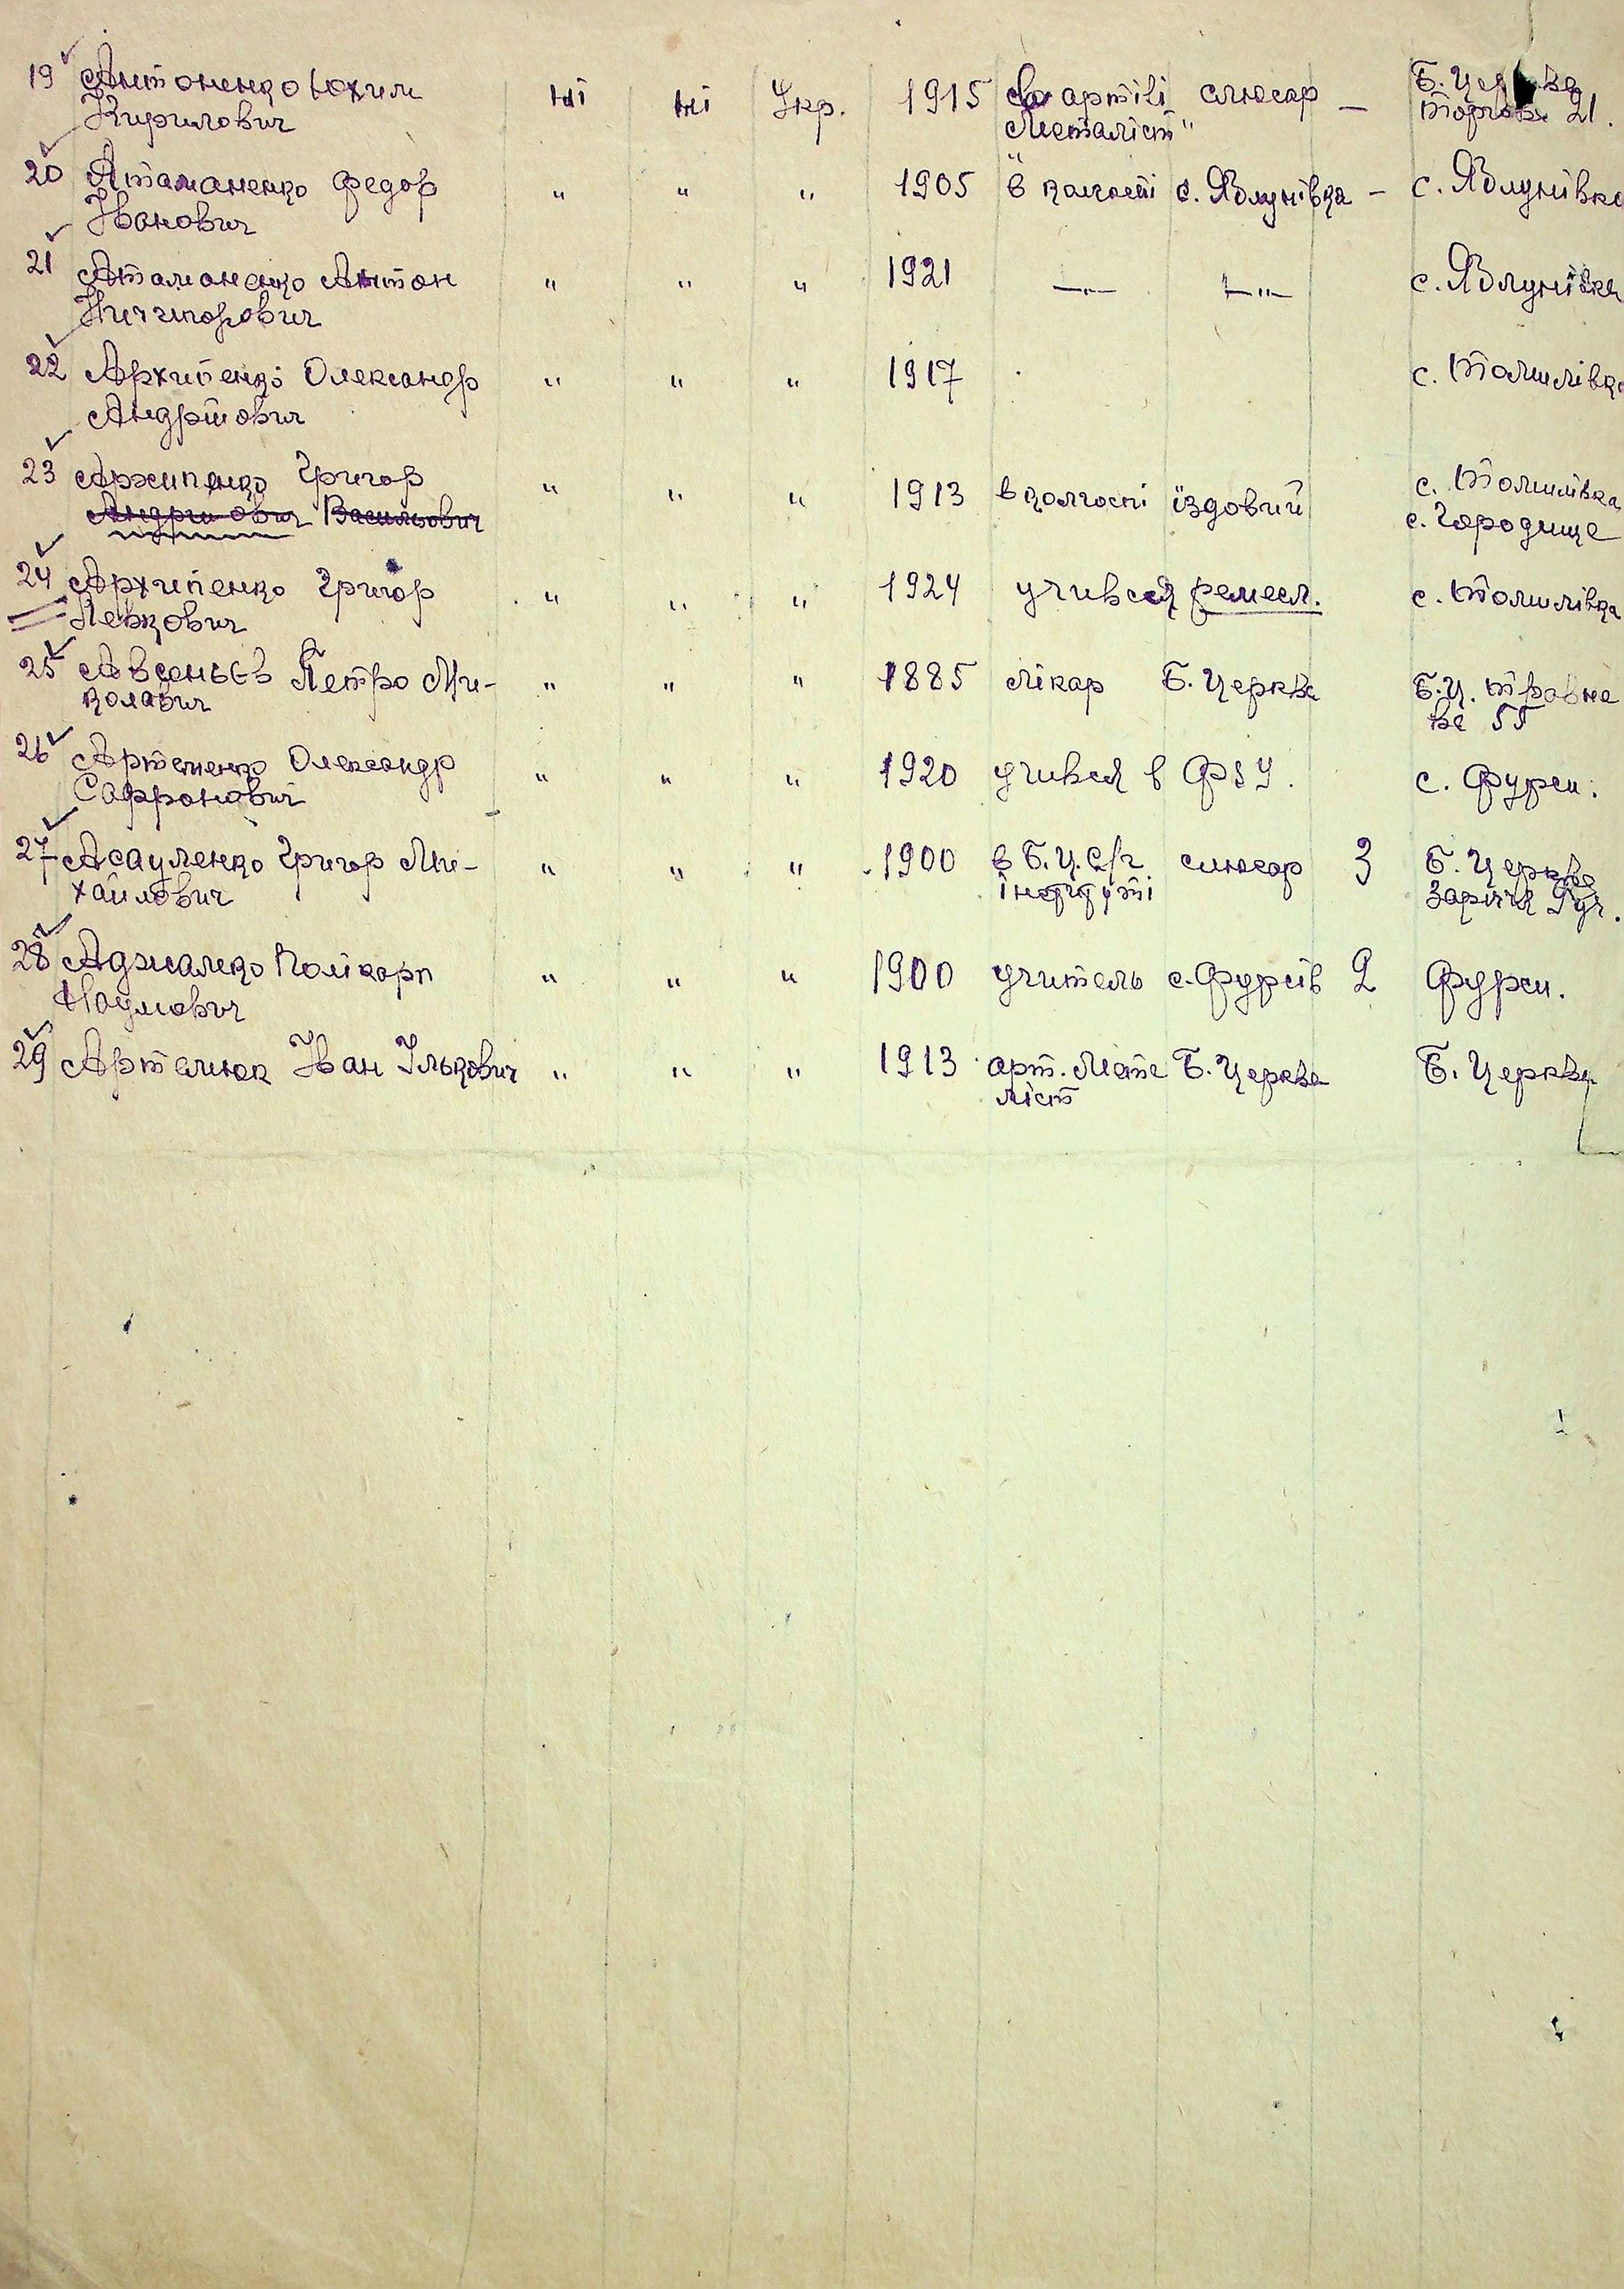 19 Антоненко Юхим ні ні Укр. 1915 в артілі слюсар — Б. Церква
Кирилович „Металіст" торгова 21.
20 Атаманенко Федор " " " 1905 в колгоспі с. Яблунівка – с. Яблунівка
Іванович
21 Атаманенко Антон " " " 1921 —"— —"— с. Яблунівка
Ничипорович
22 Архипенко Олександр " " " 1917 с. Томилівка
Андрійович
23 Архипенко Григор " " " 1913 в колгоспі їздовий с. Томилівка
Андрійович Васильович с. Городище
24 Архипенко Григор " " " 1924 учився ремесл. с. Томилівка
Левкович
25 Авсеньєв Петро Ми- " " " 1885 лікар Б. Церква Б.Ц.
колавич 55
26 Артеменко Олександр " " " 1920 учився в ФЗУ. с. Фурси.
Сафронович
27 Асауленко Григор Ми- " " " 1900 в Б.Ц. с/г слюсар 3 Б. Церква
хайлович інституті Заріччя
28 Аджаленко Полікарп " " " 1900 учитель с. Фурсів 2 Фурси.
Наумович
29 Артемюк Іван Ількович " " " 1913 арт. Мета Б. Церква Б. Церква
ліст